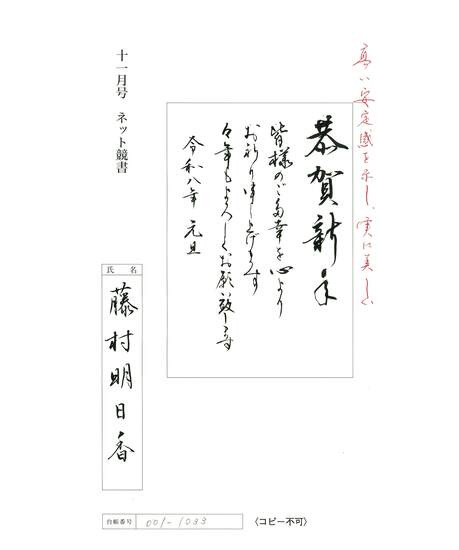 高い安定感を示し、実に美しい
恭賀新年
皆様のご多幸を心より
お祈り申し上げます
本年もよろしくお願い致します
令和八年 元旦
十一月号 ネット競書
氏名
藤村明日香
台帳番号 001-1033
〈コピー不可〉